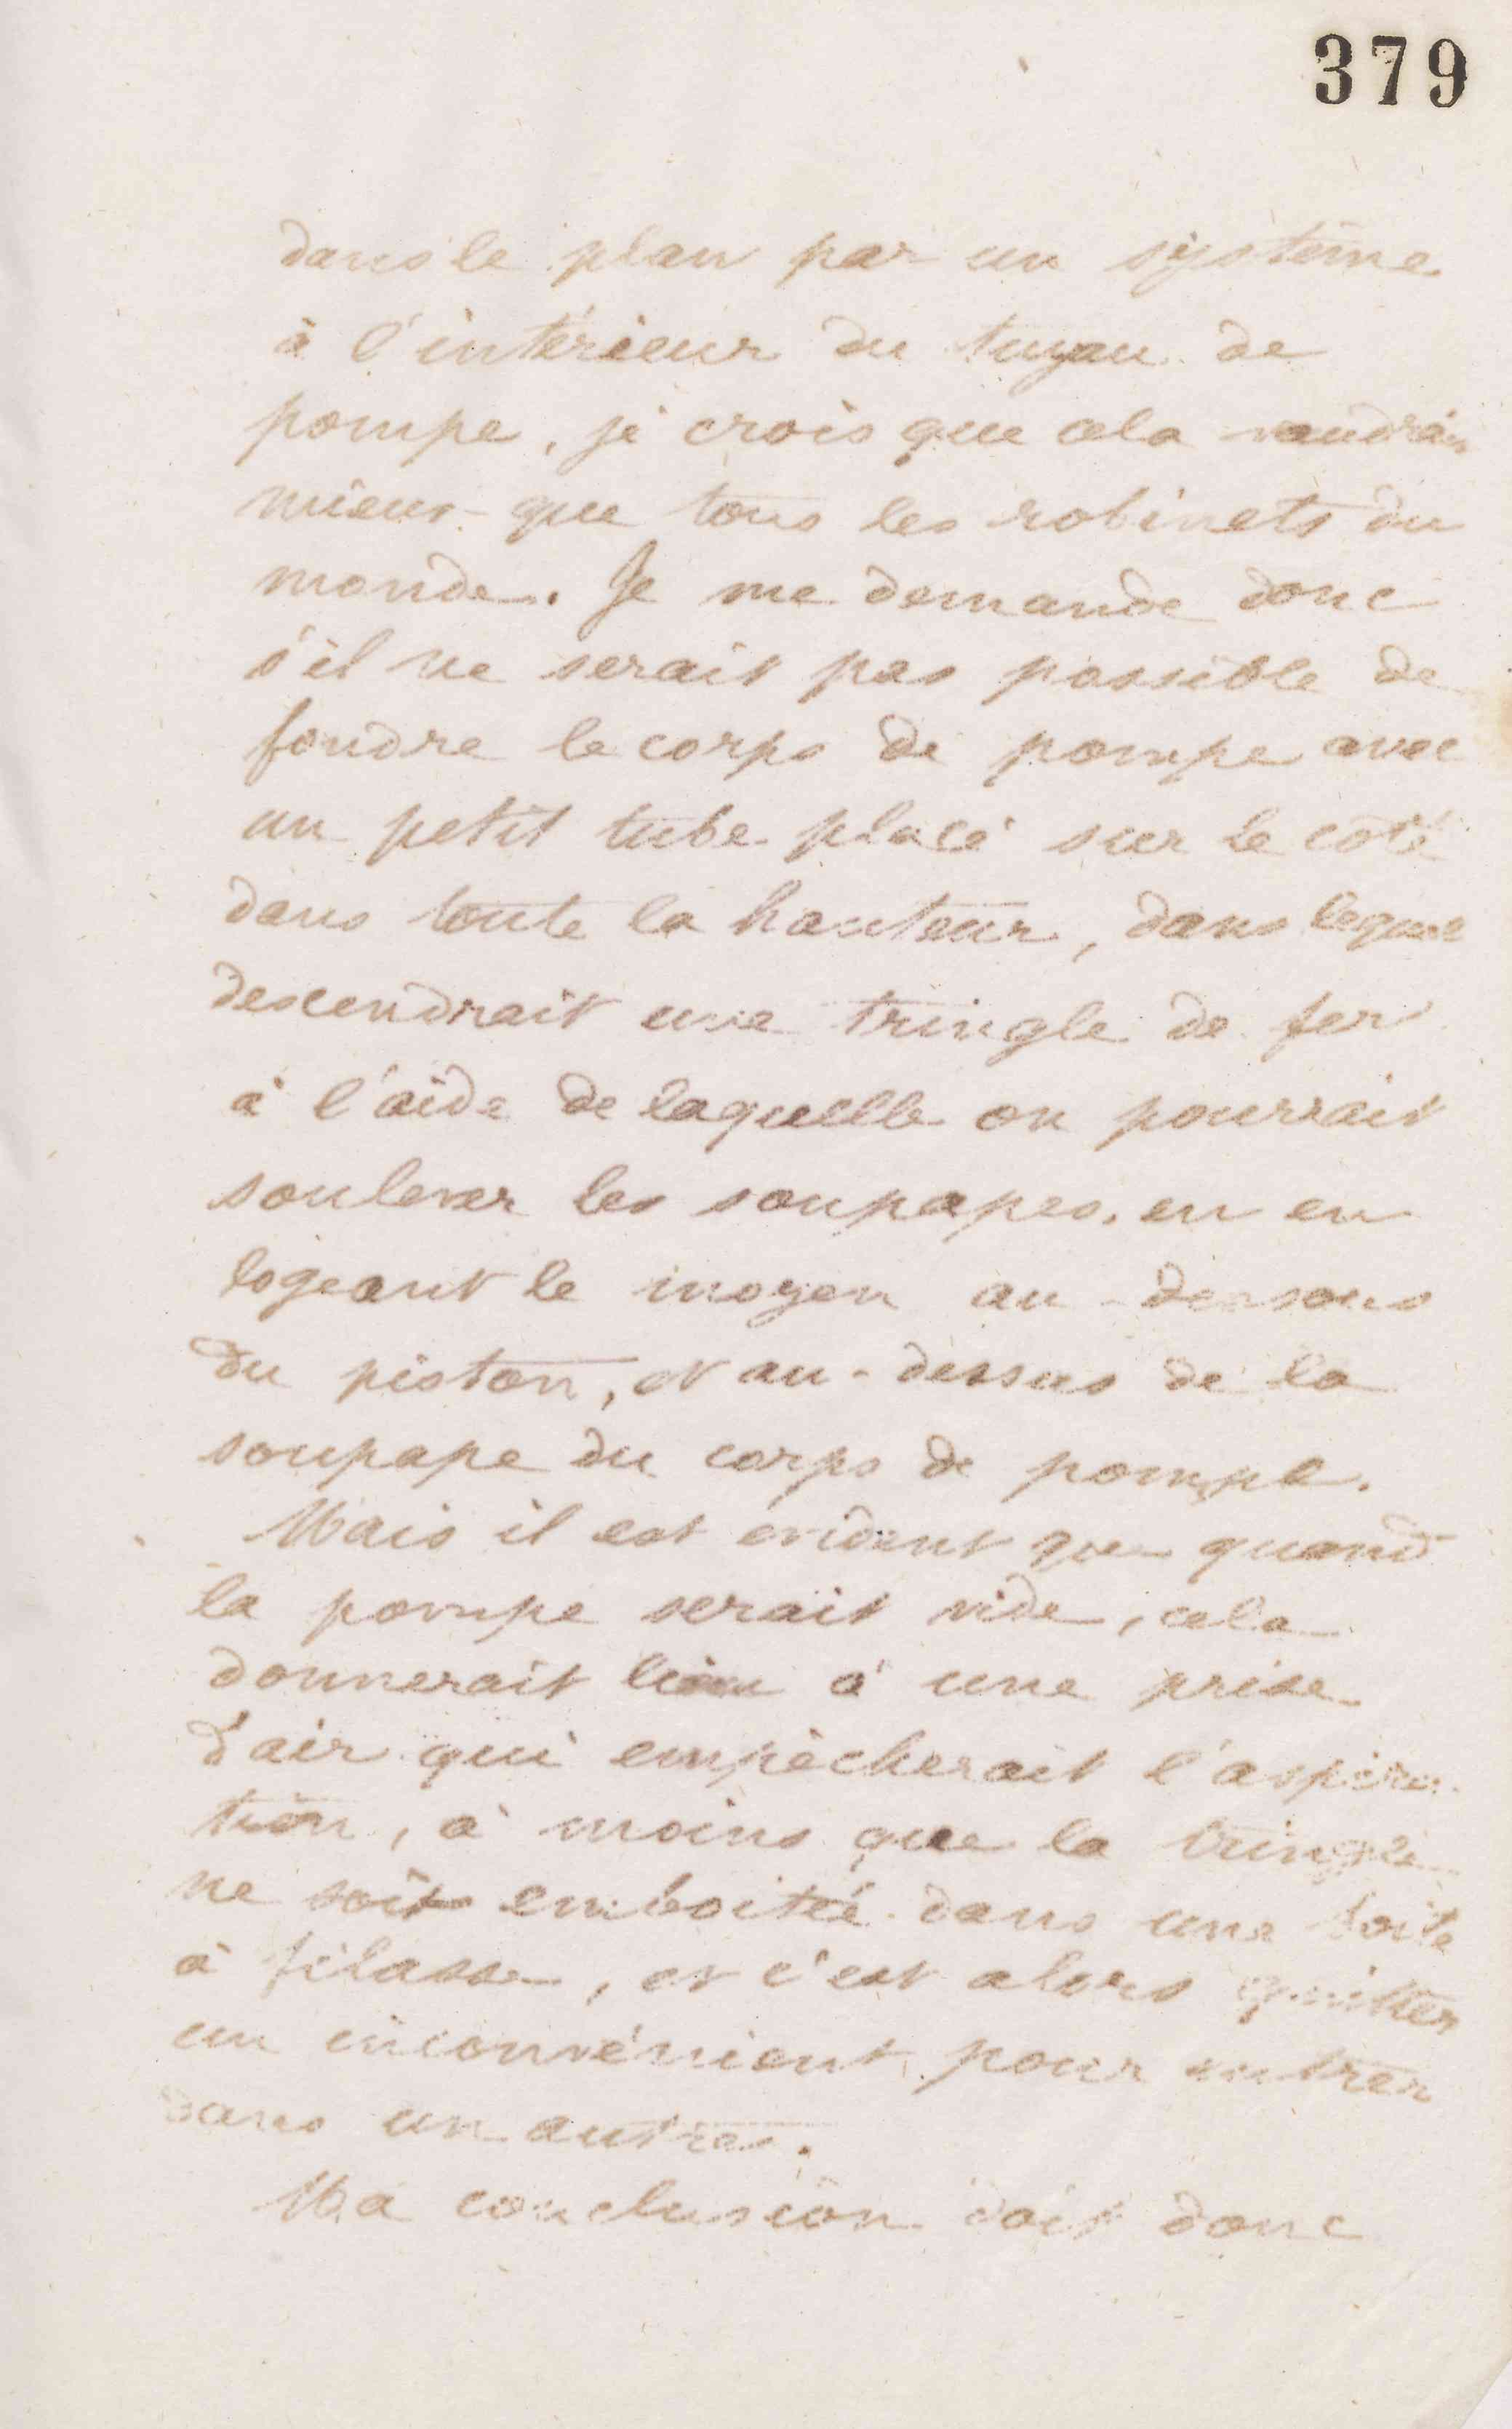 379
dans le plan par un système
à l'intérieur du tuyau de
pompe, je crois que cela vaudrait
mieux que tous les robinets du
monde. Je me demande donc
s'il ne serait pas possible de
fondre le corps de pompe avec
un petit tube placé sur le côté
dans toute la hauteur, dans lequel
descendrait une tringle de fer
à l'aide de laquelle on pourrait
soulever les soupapes, en en
logeant le moyen au-dessous
du piston, et au-dessus de la
soupape du corps de pompe.
Mais il est évident que quand
la pompe serait vide, cela
donnerait lieu à une prise
d'air qui empêcherait l'aspira-
tion, à moins que la tringle
ne soit emboitée dans une boite
à filasse, et c'est alors quitter
un inconvénient pour entrer
dans un autre.
Ma conclusion doit donc